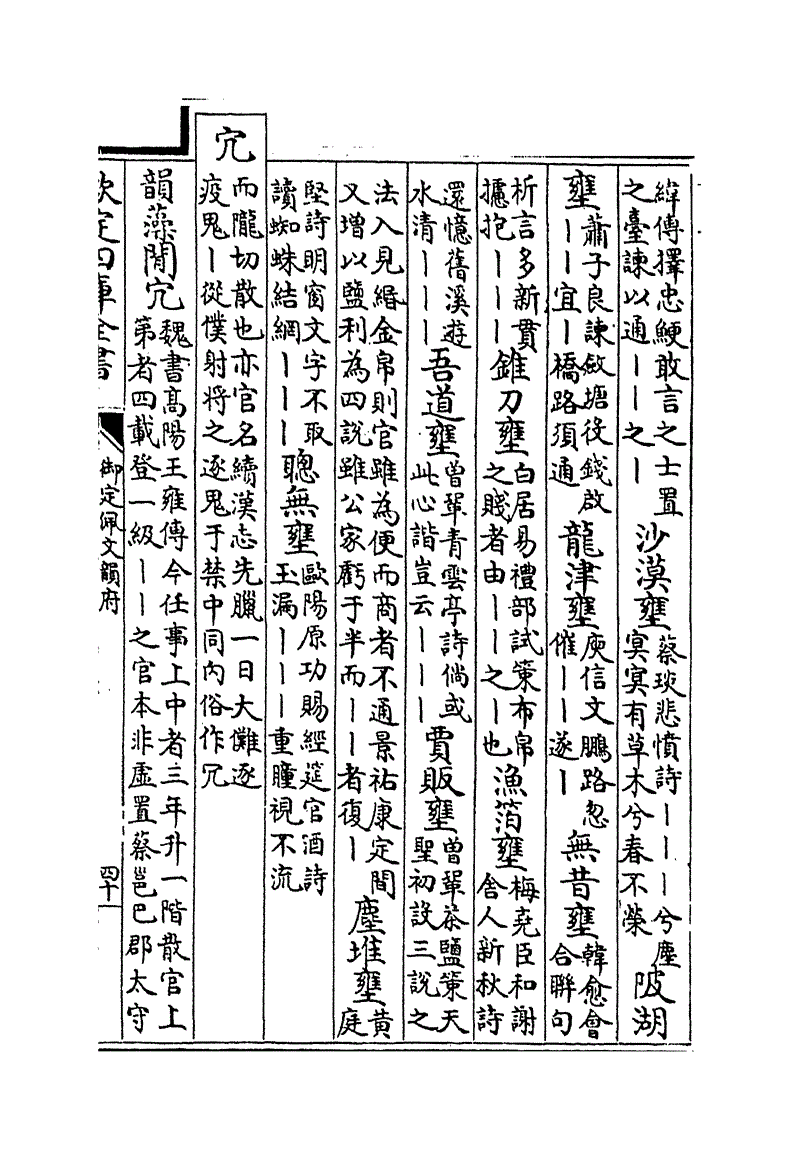 緯傳擇忠鯁敢言之士置
之臺諫以通丨丨之丨
沙漠壅
蔡琰悲憤詩丨丨丨兮塵
冥冥有草木兮春不榮
陂湖
壅
蕭子良諫啟塘役錢啟
丨丨宜丨橋路須通
龍津壅
庾信文鵬路忽
催丨丨遂丨
無昔壅
韓愈會
合聯句
析言多新貫
攄抱丨丨丨
錐刀壅
白居易禮部試策布帛
之賤者由丨丨之丨也
漁箔壅
梅堯臣和謝
舍人新秋詩
還憶舊溪遊
水清丨丨丨
吾道壅
曾鞏青雲亭詩倘或
此心諧豈云丨丨丨
賈販壅
曾鞏茶鹽策天
聖初設三說之
法入見緡金帛則官雖為便而商者不通景祐康定間
又增以鹽利為四說雖公家虧于半而丨丨者復丨
塵堆壅
黄
庭
堅詩明窗文字不取
讀蜘蛛結網丨丨丨
聰無壅
歐陽原功賜經筵官酒詩
玉漏丨丨丨重瞳視不流
宂
而隴切散也亦官名續漢志先臘一日大儺逐
疫鬼丨從僕射將之逐鬼于禁中同内俗作冗
韻藻閒宂
魏書髙陽王雍傳今任事上中者三年升一階散官上
第者四載登一級丨丨之官本非虛置蔡邕巴郡太守
欽定四庫全書
御定佩文韻府
四十